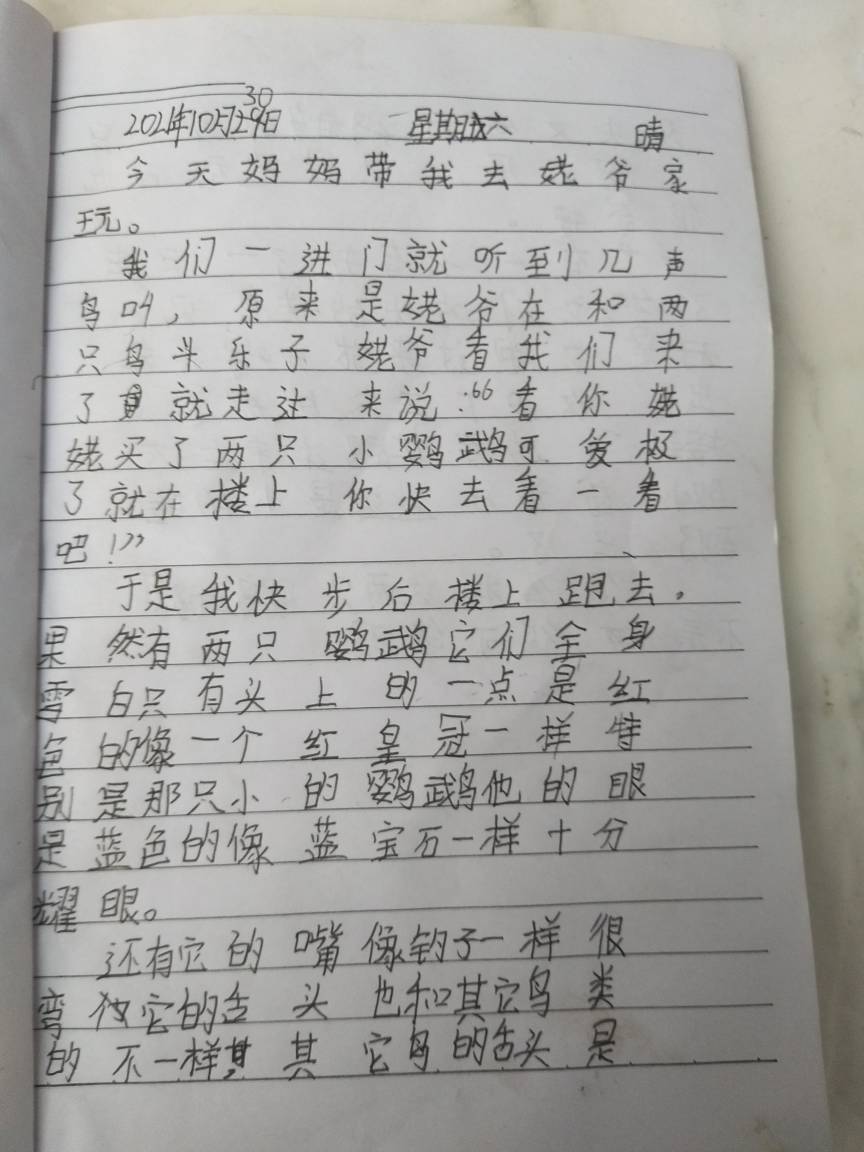 2021年10月30日 星期六 晴
今天妈妈带我去姥爷家
玩。
我们一进门就听到几声
鸟叫,原来是姥爷在和两
只鸟斗乐子姥爷看我们来
了就走过来说:“看你姥
姥买了两只小鹦鹉可爱极
了就在楼上你快去看一看
吧!”
于是我快步后楼上跑去,
果然有两只鹦鹉它们全身
雪白只有头上的一点是红
色的像一个红皇冠一样特
别是那只小的鹦鹉他的眼
是蓝色的像蓝宝石一样十分
耀眼。
还有它的嘴像钩子一样很
弯 它的舌头也和其它鸟类
的不一样,其它鸟的舌头是